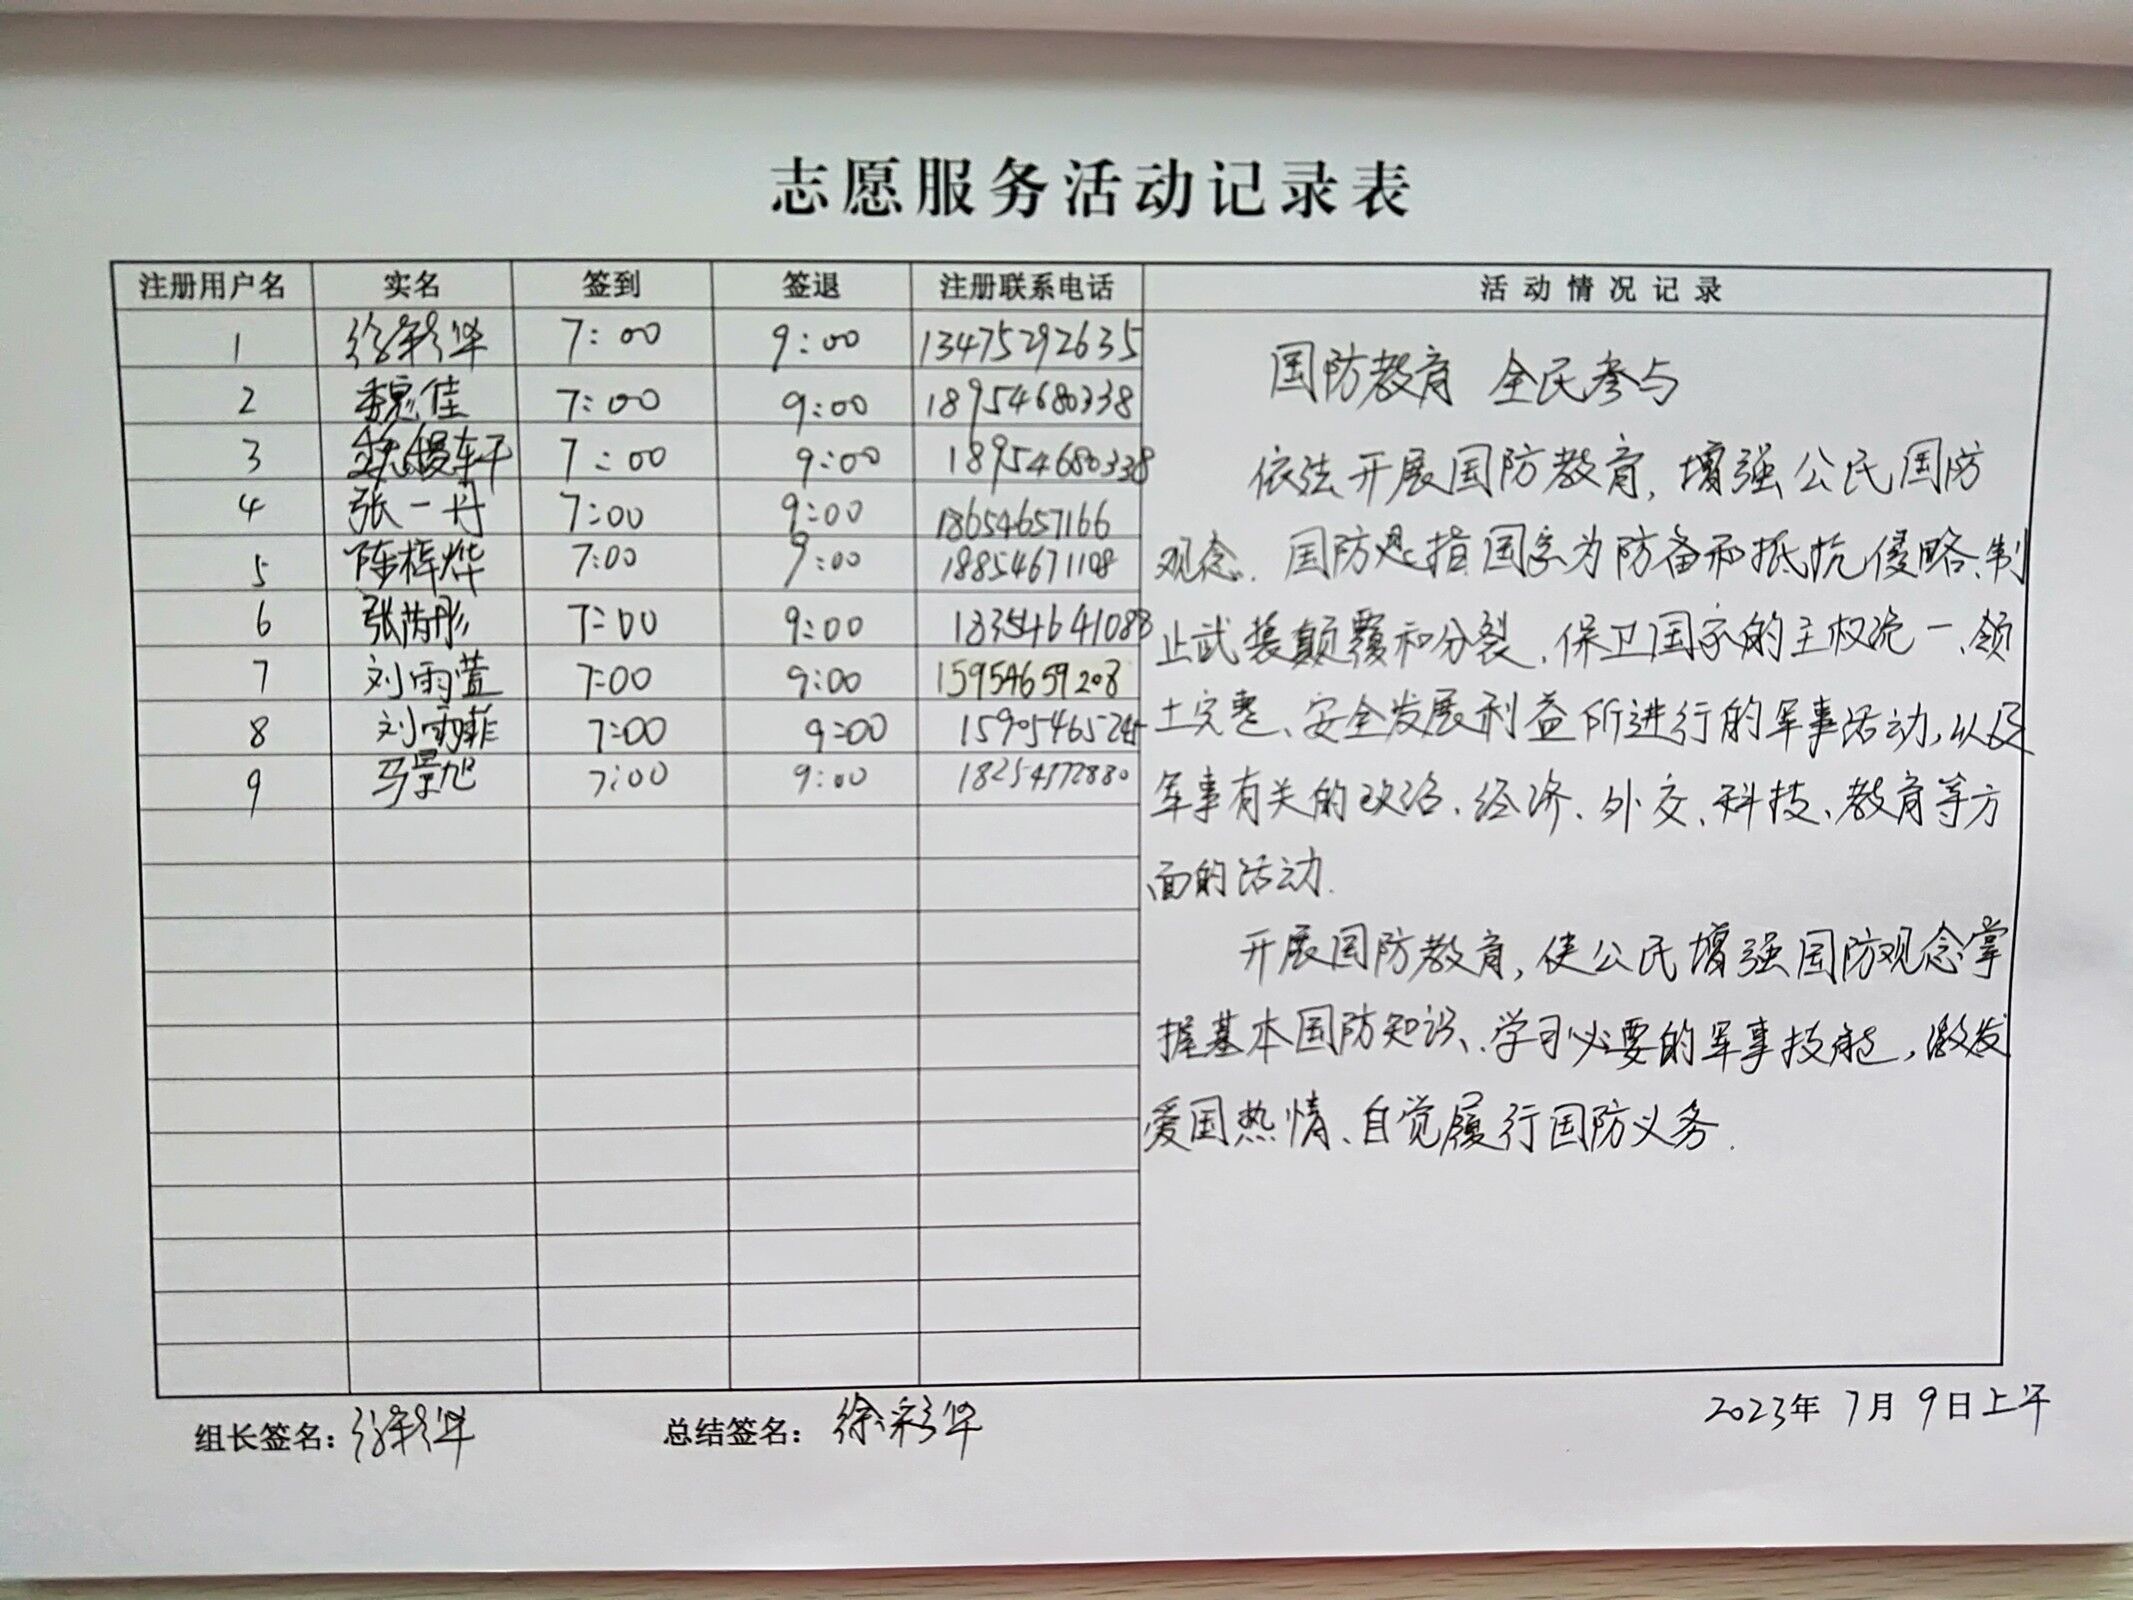 志愿服务活动记录表
注册用户名 实名 签到 签退 注册联系电话 活动情况记录
1 徐彩华 7:00 9:00 13475292635
2 魏佳 7:00 9:00 18954680338
3 7:00 9:00 18954680338
4 张一丹 7:00 9:00 18654657166
5 陈梓烨 7:00 9:00 18854671108
6 张芮彤 7:00 9:00 18354641088
7 刘雨萱 7:00 9:00 15954659208
8 刘雨菲 7:00 9:00
9 马景旭 7:00 9:00
国防教育 全民参与
依法开展国防教育,增强公民国防
观念.国防是指国家为防备和抵抗侵略、制
止武装颠覆和分裂、保卫国家的主权统一、领
土完整、安全发展利益所进行的军事活动,以及
军事有关的政治、经济、外交、科技、教育等方
面的活动.
开展国防教育,使公民增强国防观念掌
握基本国防知识、学习必要的军事技能,激发
爱国热情、自觉履行国防义务.
组长签名:徐彩华 总结签名:徐彩华 2023年7月9日上午